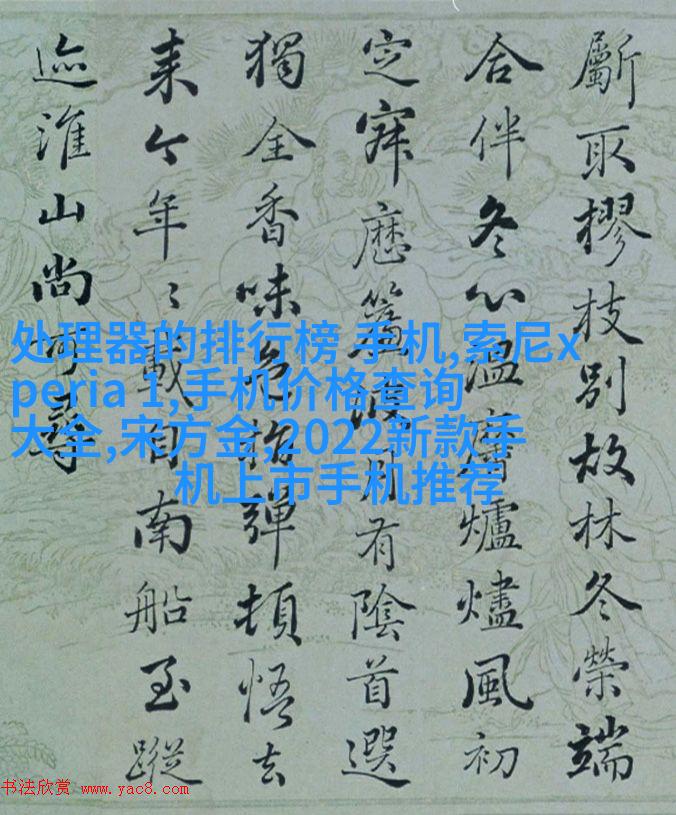 斸取樛枝別故林冬榮端
合伴冬心温爐燼風初
定月有陰首選
獨全香味彈頓悟去
来今年々載自南船至蹤
迹淮山尚可尋
处理器的排行榜 手机,索尼x
peria 1,手机价格查询
大全,宋方金,2022新款手
机上市手机推荐
书法欣赏 www.yac8.com